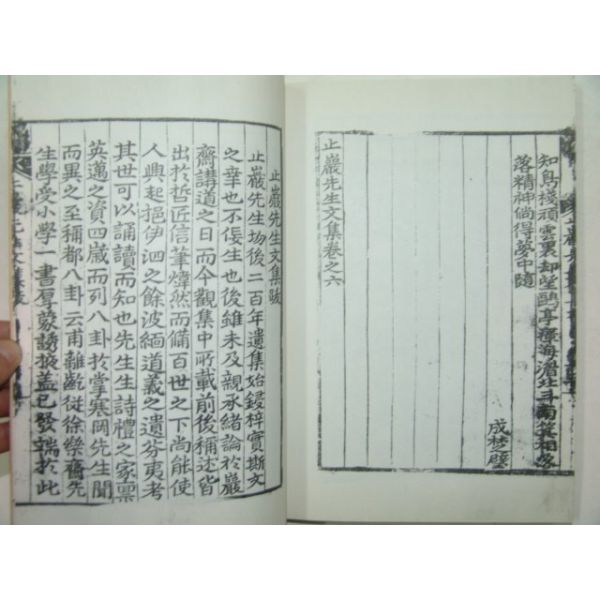 知鳥棧頑雲裏却望鷗亭瘴海澹北斗南箕相象
落精神倘得夢中隨
成梦璧
止巖先生文集卷之六
止巖先生文集跋
止巖先生歿後二百年遺集始鋟梓實斯文
之幸也不佞生也後雖未及親承緒論於巖
齋講道之日而今觀集中所載前後稱述皆
出於哲匠信筆煒然而備百世之下尚能使
人興起挹伊泗之餘波緬道義之遺芬夷考
其世可以誦讀而知也先生生詩禮之家稟
英邁之資四歲而列八卦於掌寒岡先生聞
而異之至稱都八卦云甫離齡從徐樂齋先
生學受小學一書羣蒙誘掖盖已發端於此